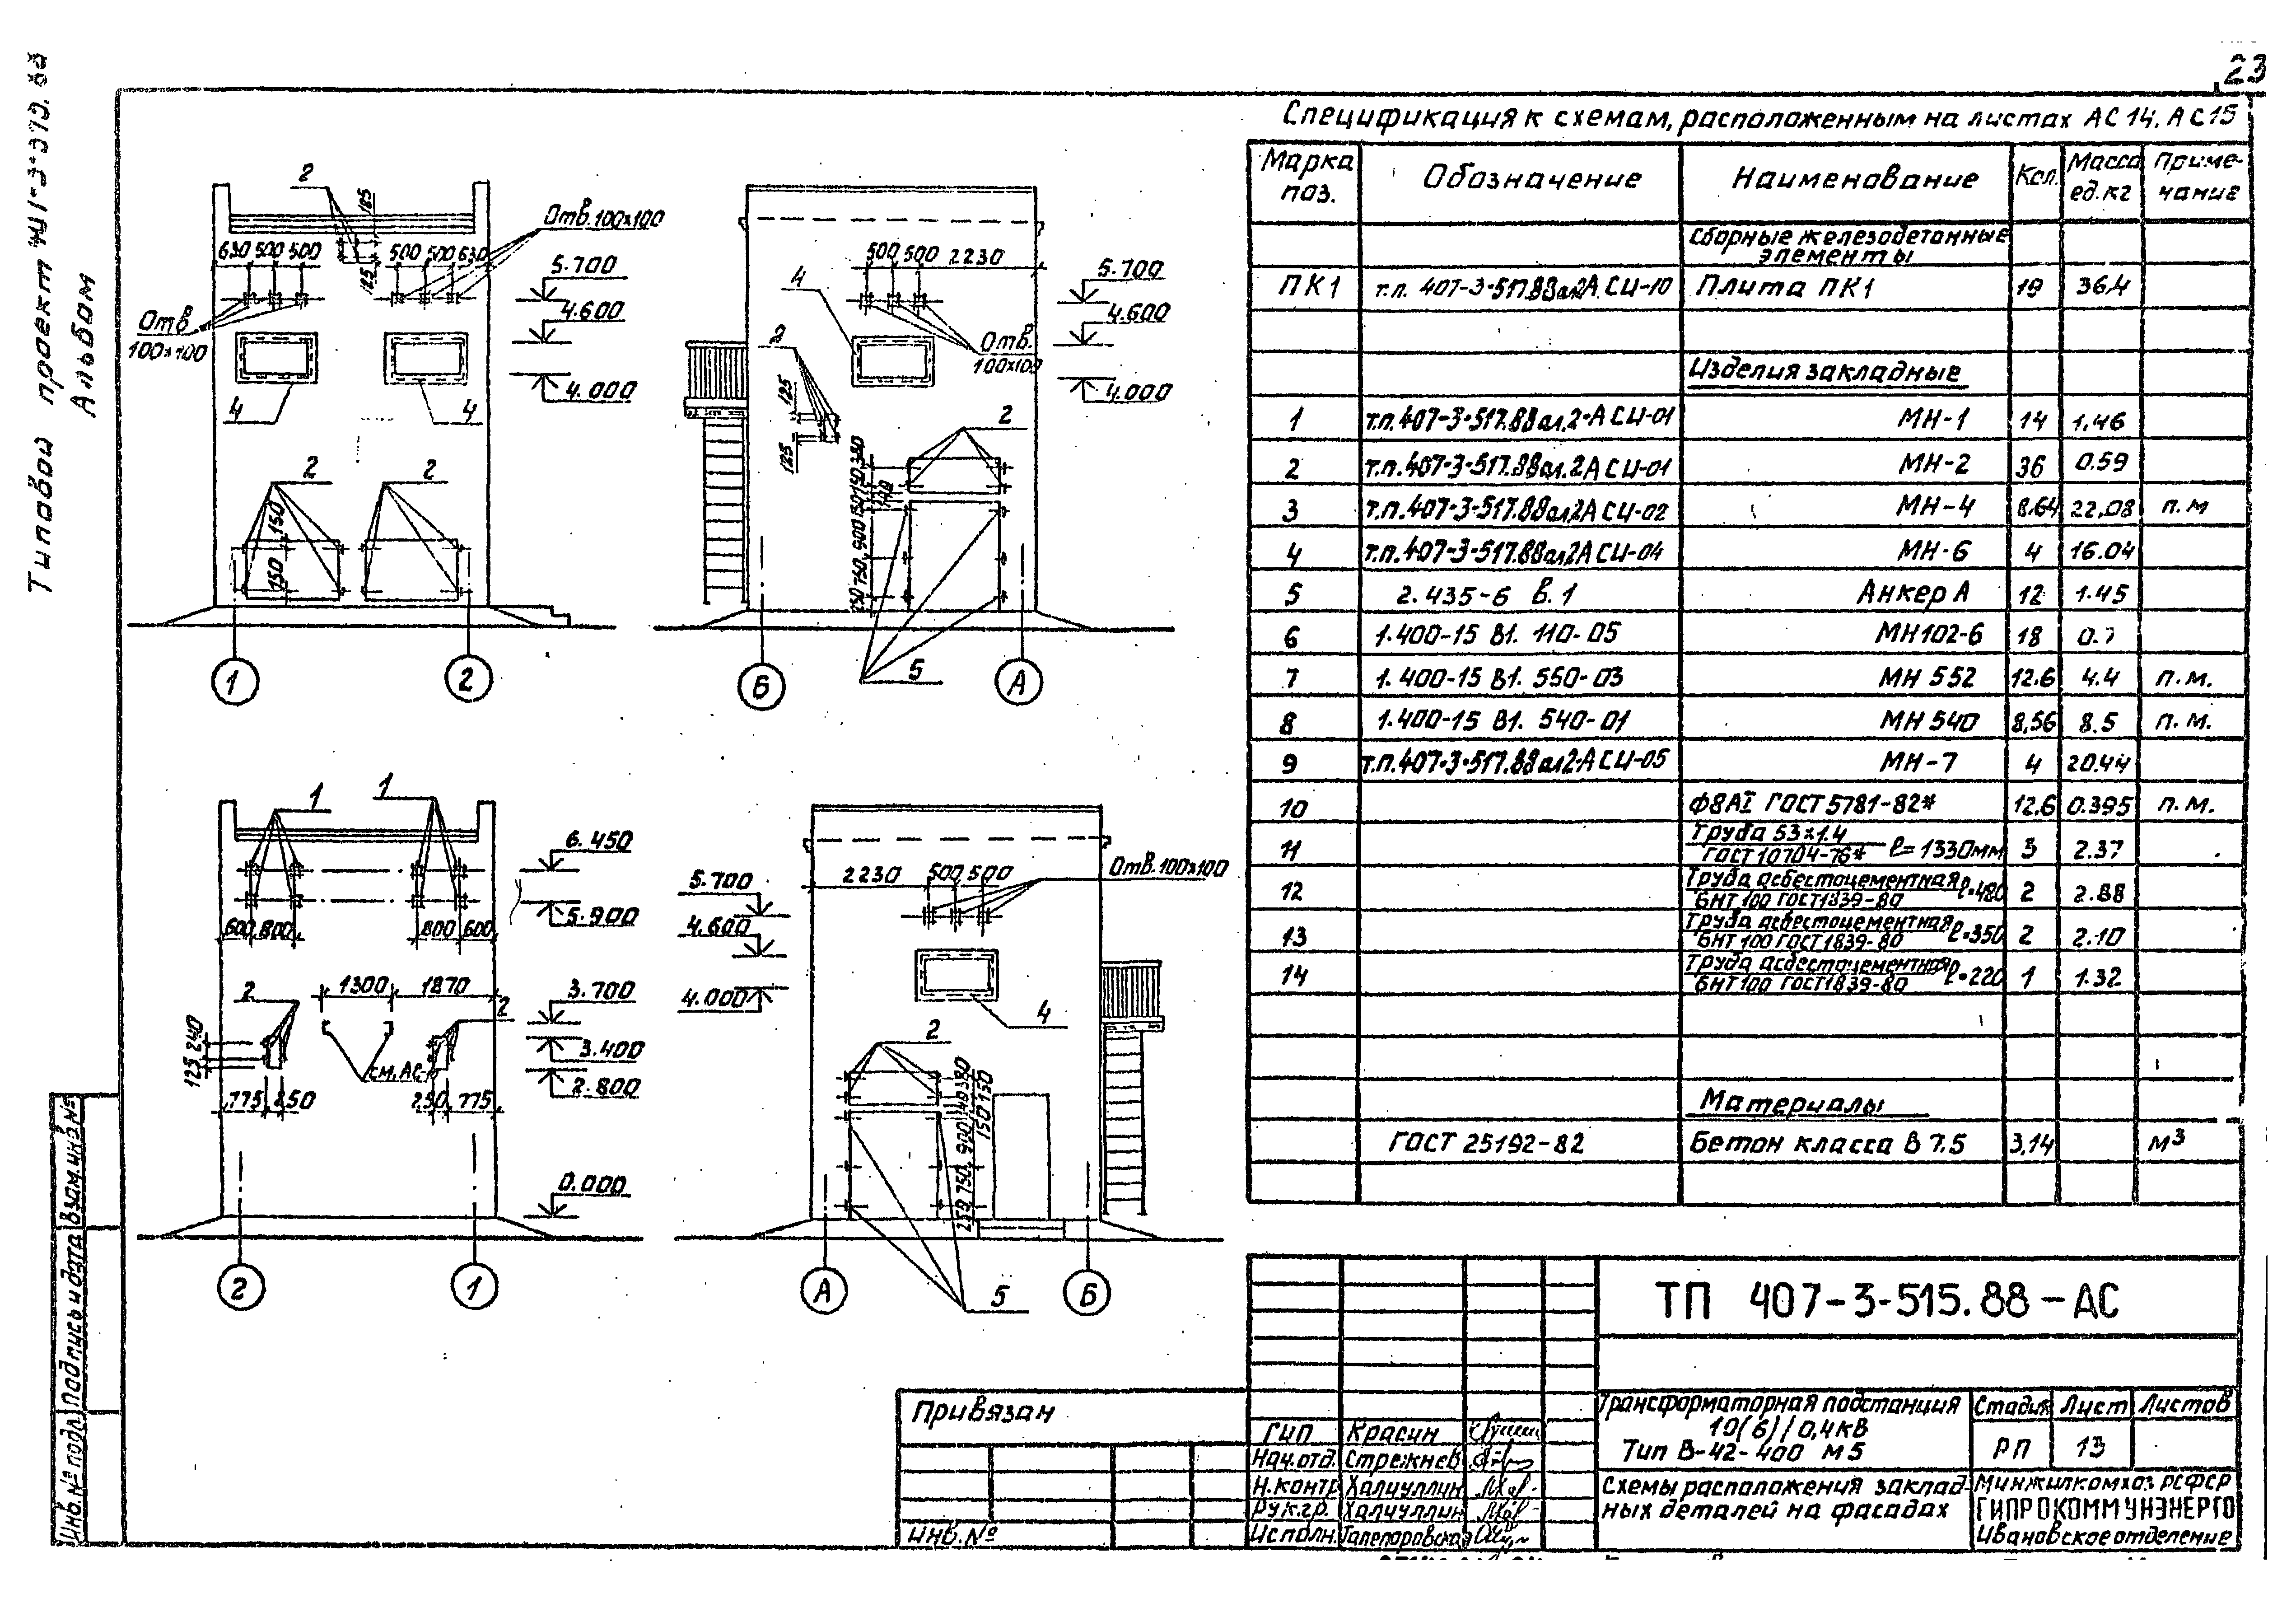 23
Типовой проект
Альбом
Спецификация к схемам, расположенным на листах АС14, АС15
Марка поз. Обозначение Наименование Кол. Масса ед.кг Приме-чание
Сборные железобетонные
элементы
ПК1 т.п. 407-3-517.88 ал.2 АСИ-10 Плита ПК1 19 36,4
Изделия закладные
1 т.п.407-3-517.88 ал.2-АСИ-01 МН-1 14 1.46
2 т.п.407-3-517.88 ал.2АСИ-01 МН-2 36 0.59
3 т.п.407-3-517.88 ал2АСИ-02 МН-4 8,64 22,08 п.м
4 т.п.407-3-517.88 ал2АСИ-04 МН-6 4 16.04
5 2.435-6 В.1 Анкер А 12 1.45
6 1.400-15 В1. 110-05 МН102-6 18 0.7
7 1.400-15 В1. 550-03 МН 552 12.6 4.4 п.м.
8 1.400-15 В1. 540-01 МН 540 8,56 8.5 п.м.
9 т.п.407-3-517.88 ал2-АСИ-05 МН-7 4 20.44
10 Ф8АI ГОСТ 5781-82* 12.6 0.395 п.м.
11 Труба 53х1.4
ГОСТ 10704-76* ℓ=1330мм 3 2.37
12 Труба асбестоцементная
БНТ 100 ГОСТ1839-80 ℓ=480 2 2.88
13 Труба асбестоцементная
БНТ 100 ГОСТ1839-80 ℓ=350 2 2.10
14 Труба асбестоцементная
БНТ 100 ГОСТ1839-80 ℓ=220 1 1.32
Материалы
ГОСТ 25192-82 Бетон класса В 7.5 3,14 м3
2
185
630 500 500
125
500 500 630
Отв. 100х100
5.700
4.600
4.000
Отв
100х100
4
4
2
2
150
150
1
2
500 500 2230
4
5.700
4.600
4.000
Отв.
100х100
2
125
125
2
750 900
5
Б
А
1
1
6.450
5.900
600 800
800 600
2
1300 1870
2
3.700
3.400
2.800
240
125
см. АС-
775 250
250 775
0.000
2
1
2230 500 500
Отв. 100х100
5.700
4.600
4.000
4
2
150 150
750 900
5
А
Б
ТП 407-3-515.88-АС
Трансформаторная подстанция
10(6)/0,4кВ
Тип В-42-400 М5
Стадия Лист Листов
РП 13
Схемы расположения заклад-
ных деталей на фасадах
Минжилкомхоз РСФСР
ГИПРОКОММУНЭНЕРГО
Ивановское отделение
Привязан
Инв.№
ГИП Красин
Нач.отд. Стрежнев
Н.контр Халиуллин
Рук.гр. Халиуллин
Исполн.
Инв.№ подл. Подпись и дата Взам.инв.№